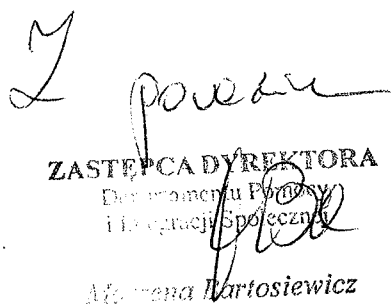 Z poważaniem
ZASTĘPCA DYREKTORA
Departamentu Pomocy
i Integracji Społecznej
Bartosiewicz